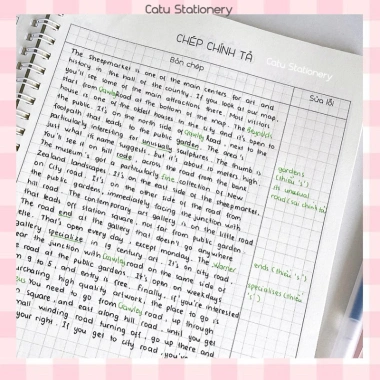 Catu Stationery
CHÉP CHÍNH TẢ
Catu Stationery
Bản chép
Sửa lỗi
The Sheepmarket is one of the main centers for art and
history in the hall of the country. If you look at our map,
you'll see some of the main attractions there. Most visitors
start from Crawley Road at the bottom of the map. The Reynolds
house is one of the oldest houses in the city and it's open to
the public. It's on the north side of Crawley Road, next to the
footpath that leads to the public garden. The area's
particularly interesting for unusually sculptures. The thumb is
just what its name suggests, but it's about 10 meters high.
You'll see it on hill rode, across the road from the bank.
The museum's got a particularly fine collection of New
Zealand landscapes. It's on the east side of the sheepmarker
on City road. It's on the other side of the road from
the public gardens, immediately facing the junction with
hill road. The contemporary art gallery is on the little road
that leads off station square, not far from public garden
The road end at the gallery that doesn't go anywhere
else. That's open every day, except monday. The Warner
gallery specialize in 19 century art. It's on city road,
near the junction with Crawley road on the same side of
road at the public gardens. It's open on weekdays
9 to 5, and entry is free. Finally, if you're interested
purchasing high quality artwork, the place to go is
You need to go from Crawley road, up through
square, and east along hill road until you get
small winding road turning off, go up there and
your right. If you get to city road, you've
gardens
(thiếu 's')
is unusual
road (sai chính tả)
ends (thiếu 's')
specializes (thiếu
's')